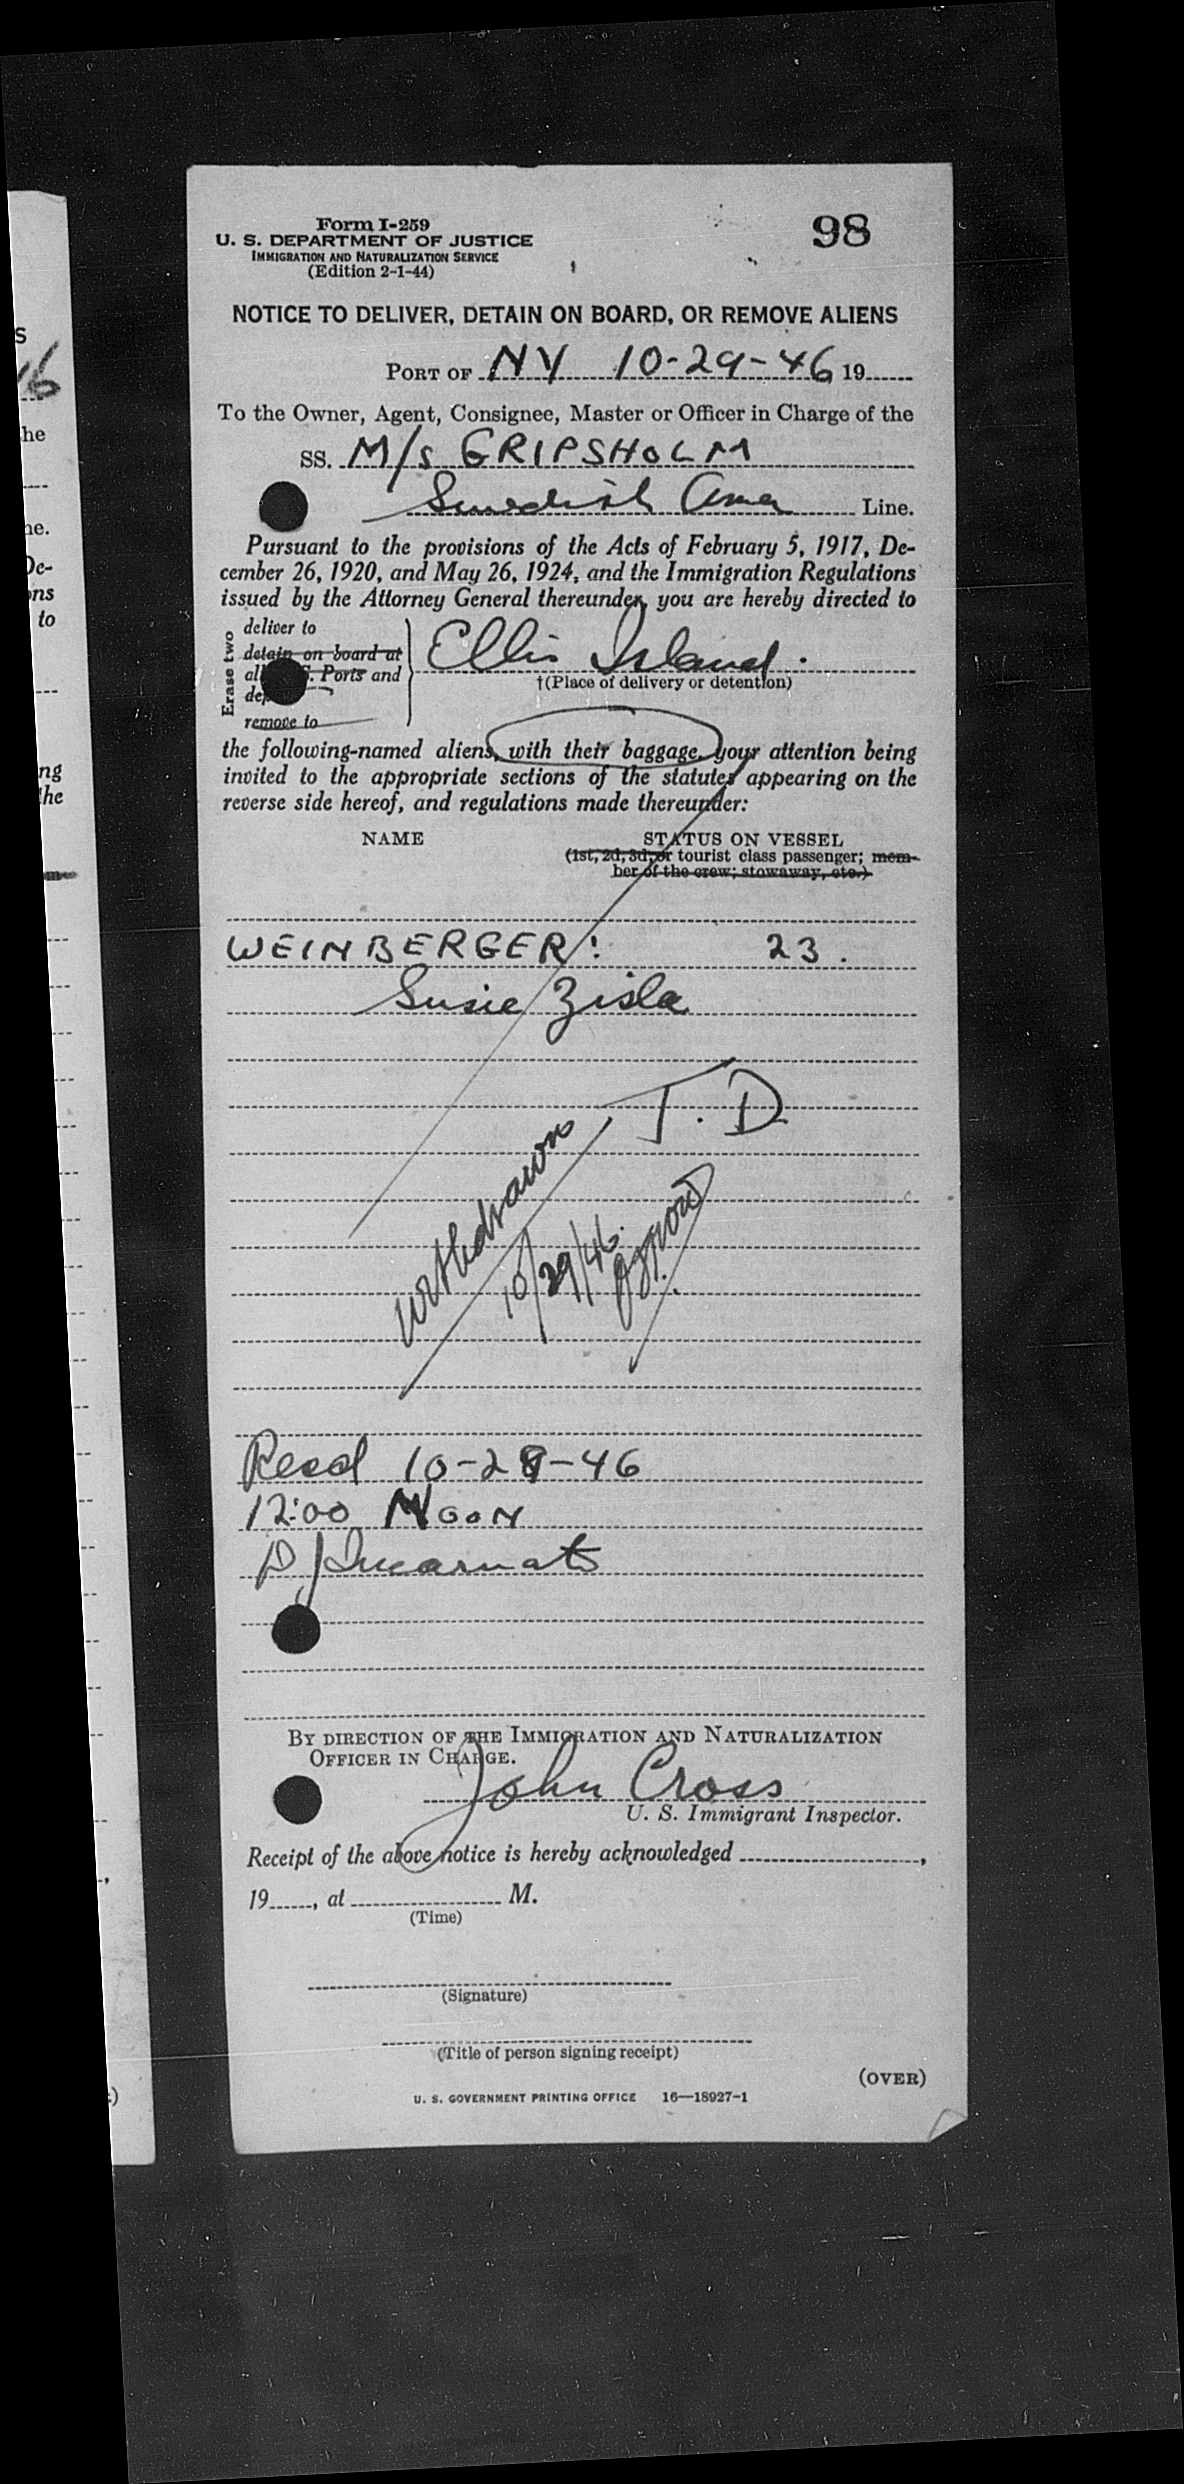 Form I-259
U. S. DEPARTMENT OF JUSTICE
IMMIGRATION AND NATURALIZATION SERVICE
(Edition 2-1-44)
98
NOTICE TO DELIVER, DETAIN ON BOARD, OR REMOVE ALIENS
PORT OF NY 10-29-46 19
To the Owner, Agent, Consignee, Master or Officer in Charge of the
SS. M/S GRIPSHOLM
Swedish Amer Line.
Pursuant to the provisions of the Acts of February 5, 1917, De-
cember 26, 1920, and May 26, 1924, and the Immigration Regulations
issued by the Attorney General thereunder, you are hereby directed to
Erase two
deliver to
detain on board at
al S. Ports and
de
remove to
Ellis Island.
†(Place of delivery or detention)
the following-named aliens, with their baggage, your attention being
invited to the appropriate sections of the statutes appearing on the
reverse side hereof, and regulations made thereunder:
NAME STATUS ON VESSEL
(1st, 2d, 3d, or tourist class passenger; mem-
ber of the crew; stowaway, etc.)
WEINBERGER: 23.
Susie Zisla
T. D
withdrawn
10/29/46
Recd 10-28-46
12:00 NOON
By DIRECTION OF THE IMMIGRATION AND NATURALIZATION
OFFICER IN CHARGE.
John Cross
U. S. Immigrant Inspector.
Receipt of the above notice is hereby acknowledged ,
19 , at M.
(Time)
(Signature)
(Title of person signing receipt)
(OVER)
U. S. GOVERNMENT PRINTING OFFICE 16—18927-1